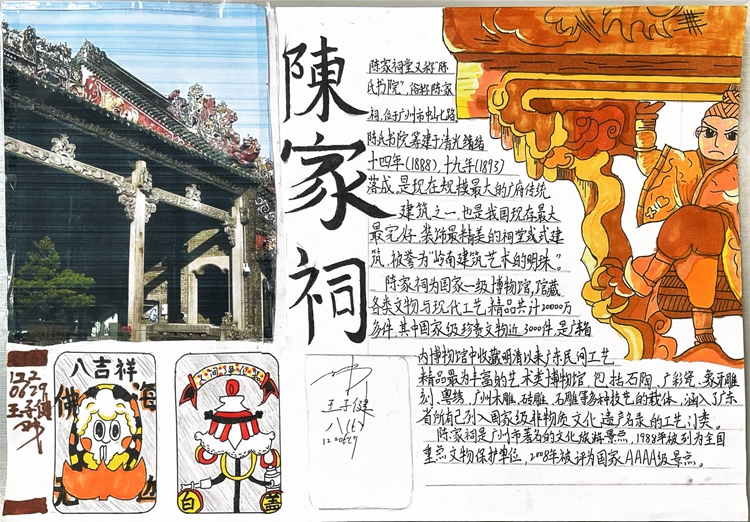 陳家祠
陈家祠堂又称“陈
氏书院”,俗称陈家
祠,位于广州市中山七路,
陈氏书院筹建于清光绪
十四年(1888),十九年(1893)
落成,是现在规模最大的广府传统
建筑之一,也是我国现存最大
最完好,装饰最精美的祠堂式建
筑,被誉为“岭南建筑艺术的明珠”。
陈家祠为国家一级博物馆,馆藏
各类文物与现代工艺,精品共计20000万
多件,其中国家级珍贵文物近3000件,是广东省
内博物馆中收藏明清以来广东民间工艺
精品最为丰富的艺术类博物馆,包括石陶、广彩瓷、象牙雕
刻、粤绣、广州木雕、砖雕、石雕等多种技艺的载体,涵入了广东
省所有已列入国家级非物质文化遗产名录的工艺门类。
陈家祠是广州市著名的文化旅游景点,1988年被列为全国
重点文物保护单位,2008年被评为国家AAAA级景点。
八吉祥
佛海
无边
白盖
王子健
八(6)
12 20629
122
0629
王子健